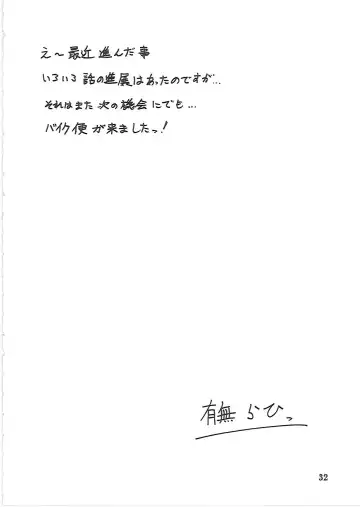 え～最近進んだ事
いろいろ話の進展はあったのですが…
それはまた次の機会にでも…
バイク便が来ましたっ!
有無らひっ
32